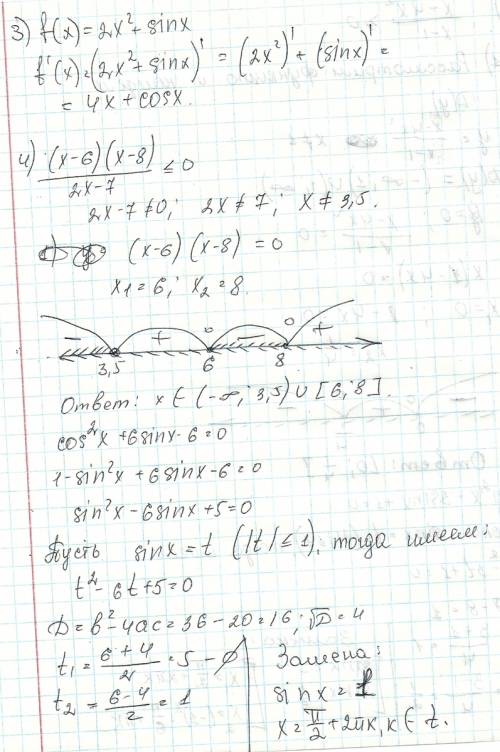 3) f(x) = 2x² + sinx
f'(x) = (2x² + sinx)' = (2x²)' + (sinx)' =
= 4x + cosx.
4) (x-6)(x-8) / 2x-7 ≤ 0
2x-7 ≠ 0; 2x ≠ 7; x ≠ 3,5.
(x-6)(x-8) = 0
x1 = 6; x2 = 8.
- + - +
3,5 6 8
Ответ: x ∈ (-∞; 3,5) ∪ [6; 8].
cos²x + 6sinx - 6 = 0
1 - sin²x + 6sinx - 6 = 0
sin²x - 6sinx + 5 = 0
Пусть sinx = t (|t| ≤ 1), тогда имеем:
t² - 6t + 5 = 0
D = b² - 4ac = 36 - 20 = 16; √D = 4
t1 = 6+4 / 2 = 5 - ∅
t2 = 6-4 / 2 = 1
Замена:
sinx = 1
x = π/2 + 2πk, k ∈ t.